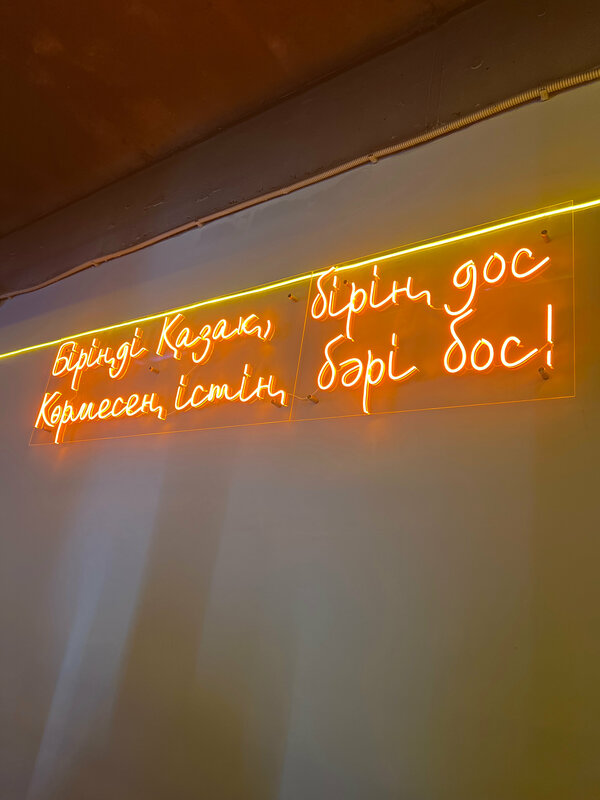 Біріңді Қазақ, бірің дос
Көрмесең істің бәрі бос!